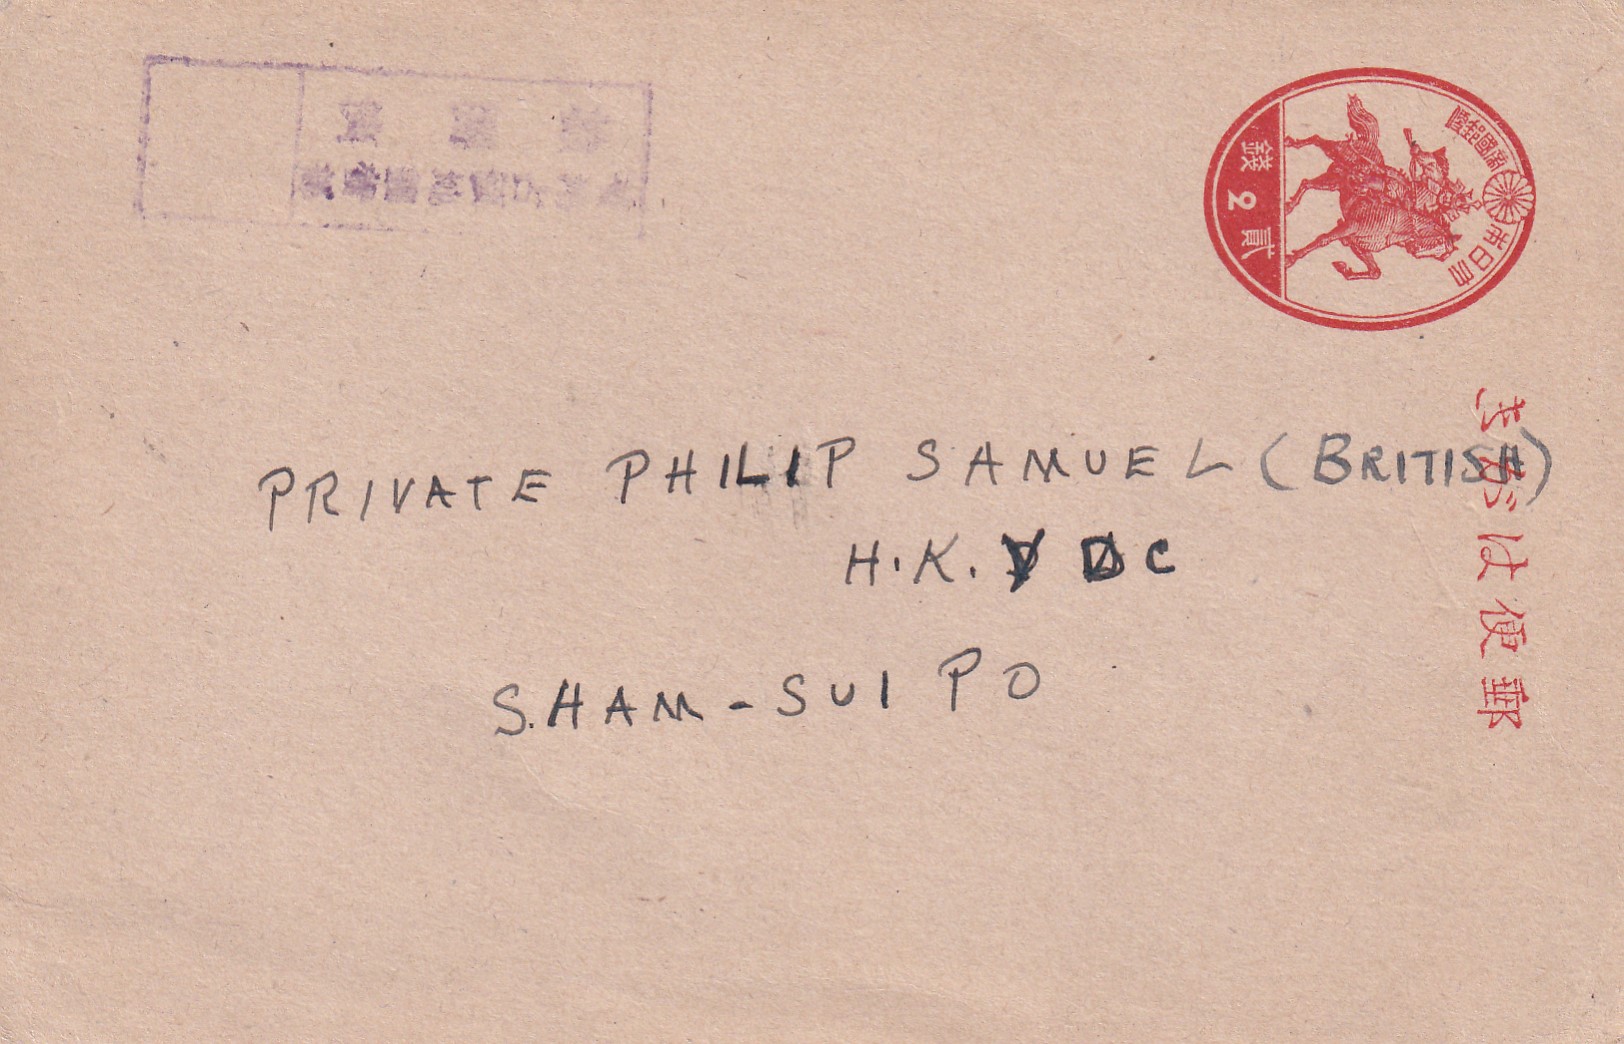 大日本帝國郵便
貳 2 錢
郵便はがき
PRIVATE PHILIP SAMUEL (BRITISH)
H.K. V D C
SHAM-SUI PO